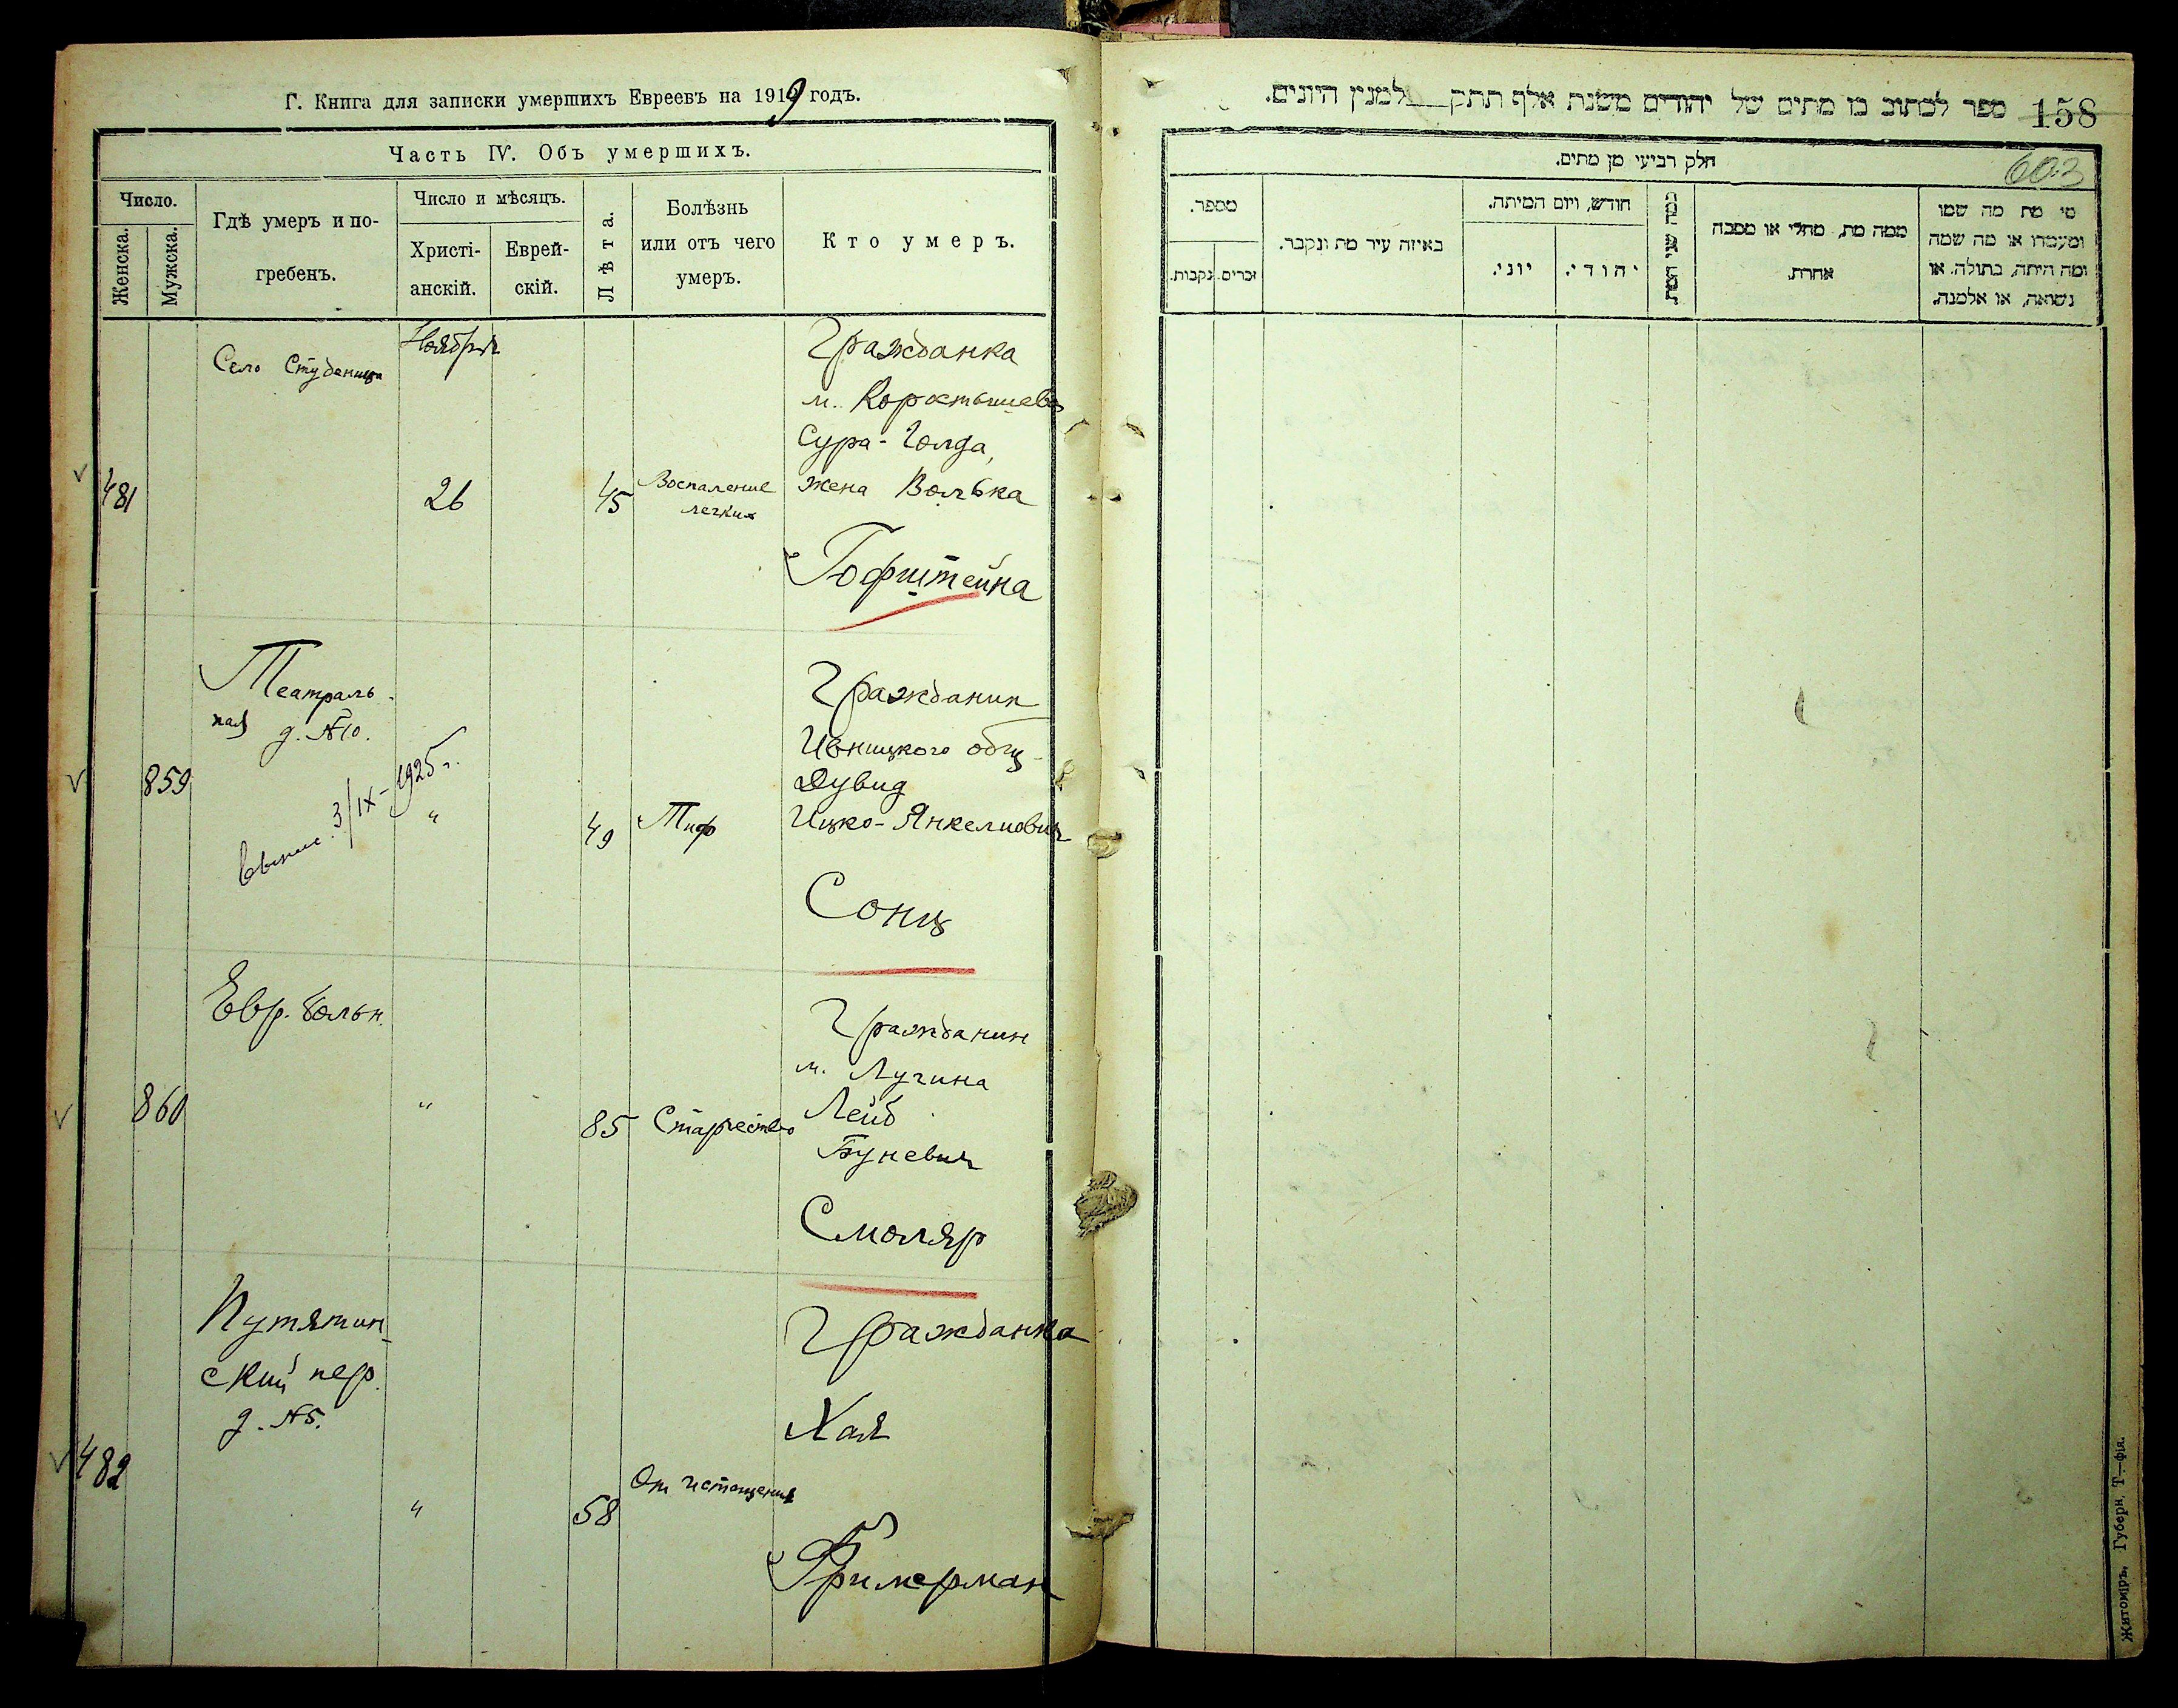 Г. Книга для записки умершихъ Евреевъ на 1919 годъ.
Часть IV. Объ умершихъ.
Число.
Женска.
Мужска.
Гдѣ умеръ и по-
гребенъ.
Число и мѣсяцъ.
Христі-
анскій.
Еврей-
скій.
Лѣта.
Болѣзнь
или отъ чего
умеръ.
Кто умеръ.
Село Студеница
Ноября
481
26
45
Воспаление
легких
Гражданка
м. Коростышева
Сура-Голда,
жена Волька
Гофштейна
Театраль-
ная
д. №10.
859
3/IX-1925 г.
"
49
Тиф
Гражданин
Ивницкого общ
Дувид
Ицко-Янкелиович
Сонц
Евр. больн.
860
"
85
Старчество
Гражданин
м. Лугина
Лейб
Буневич
Смоляр
Путятин-
ский пер.
д. №5.
482
"
58
От истощения
Гражданка
Хая
Фримерман
158
ספר לכתוב בו מתים של יהודים משנת אלף תתק למנין היונים.
603
חלק רביעי מן מתים.
מספר.
זכרים.
נקבות.
באיזה עיר מת ונקבר.
חודש, ויום המיתה.
יוני.
יהודי.
כמה שני המת.
ממה מת, מחלי או מסבה
אחרת.
מי מת מה שמו
ומעמדו או מה שמה
ומה היתה, בתולה. או
נשואה, או אלמנה.
Житомиръ, Губерн. Т—фія.